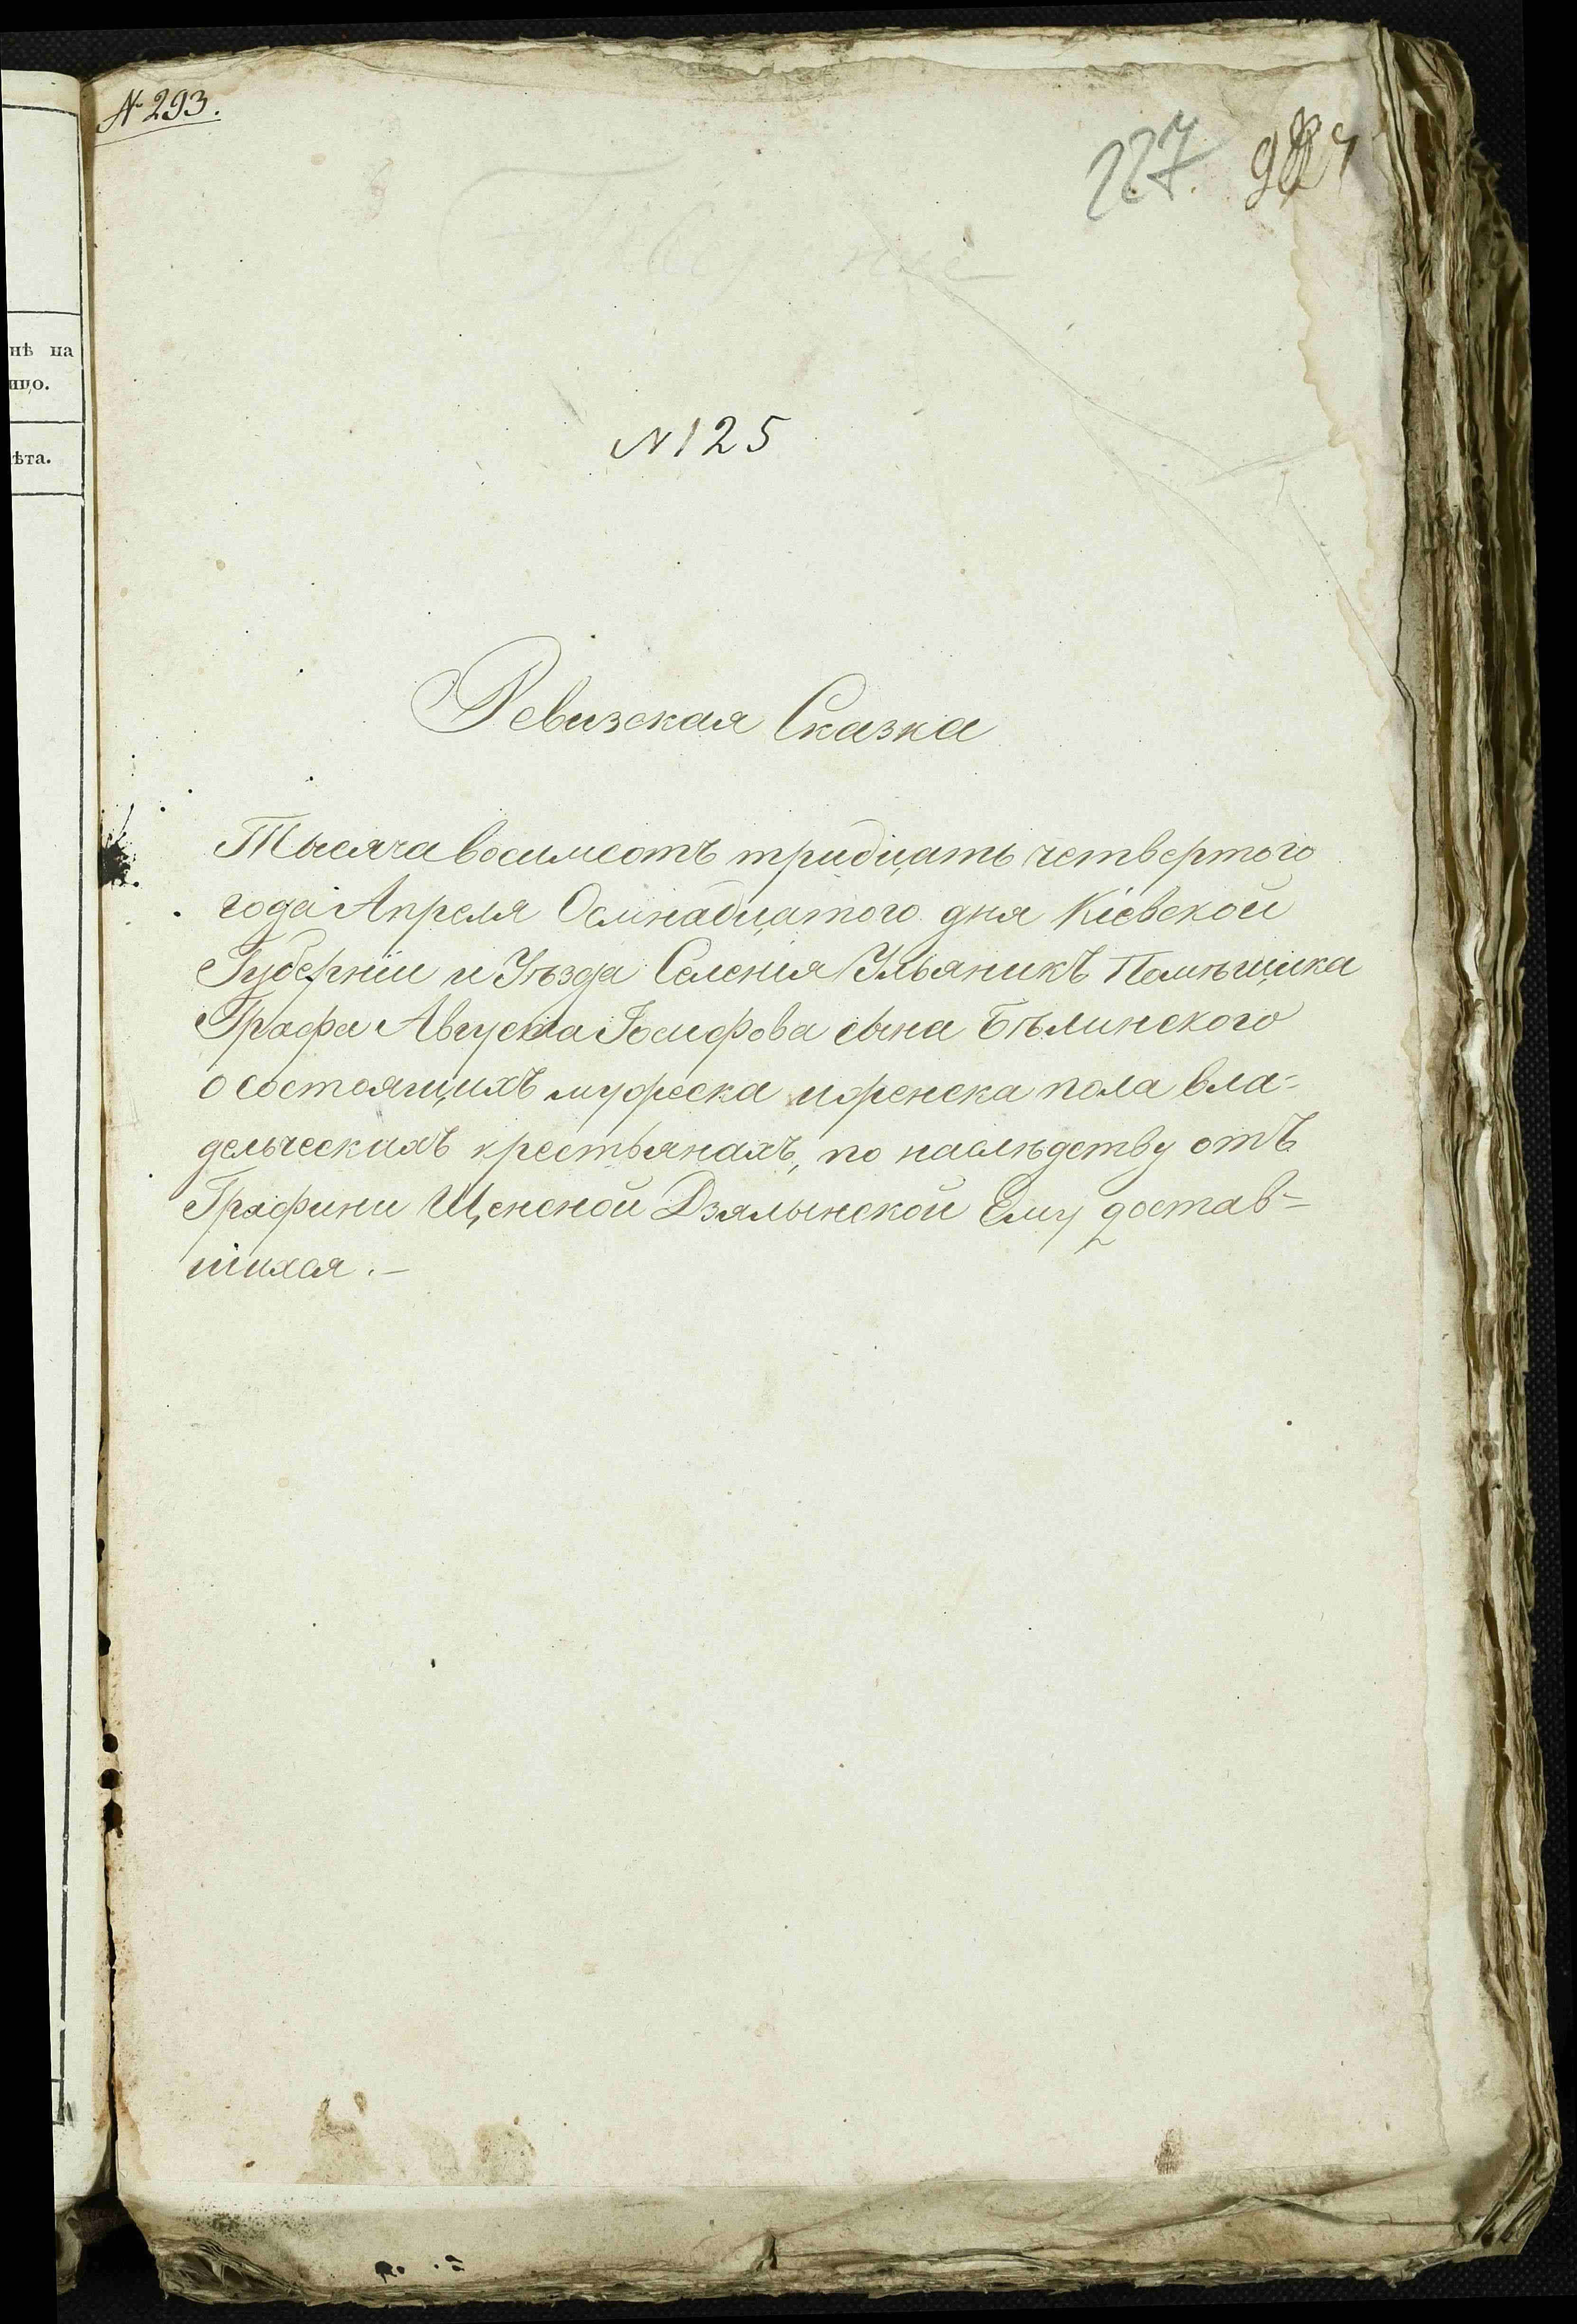 № 293.
227.
нѣ на
ицо.
ѣта.
№ 125
Ревизская Сказка
Тысяча восимсотъ тридцать четвертого
года Апреля Осмнадцатого дня Кіевской
Губерніи и Уѣзда Селенія Ульяникъ Помѣщика
Графа Августа Іосифова сына Бѣлинского
о состоящихъ мужеска и женска пола вла-
дельческихъ крестьянахъ, по наслѣдству отъ
Графини Щенсной Дзялынской Ему достав-
шихся.-